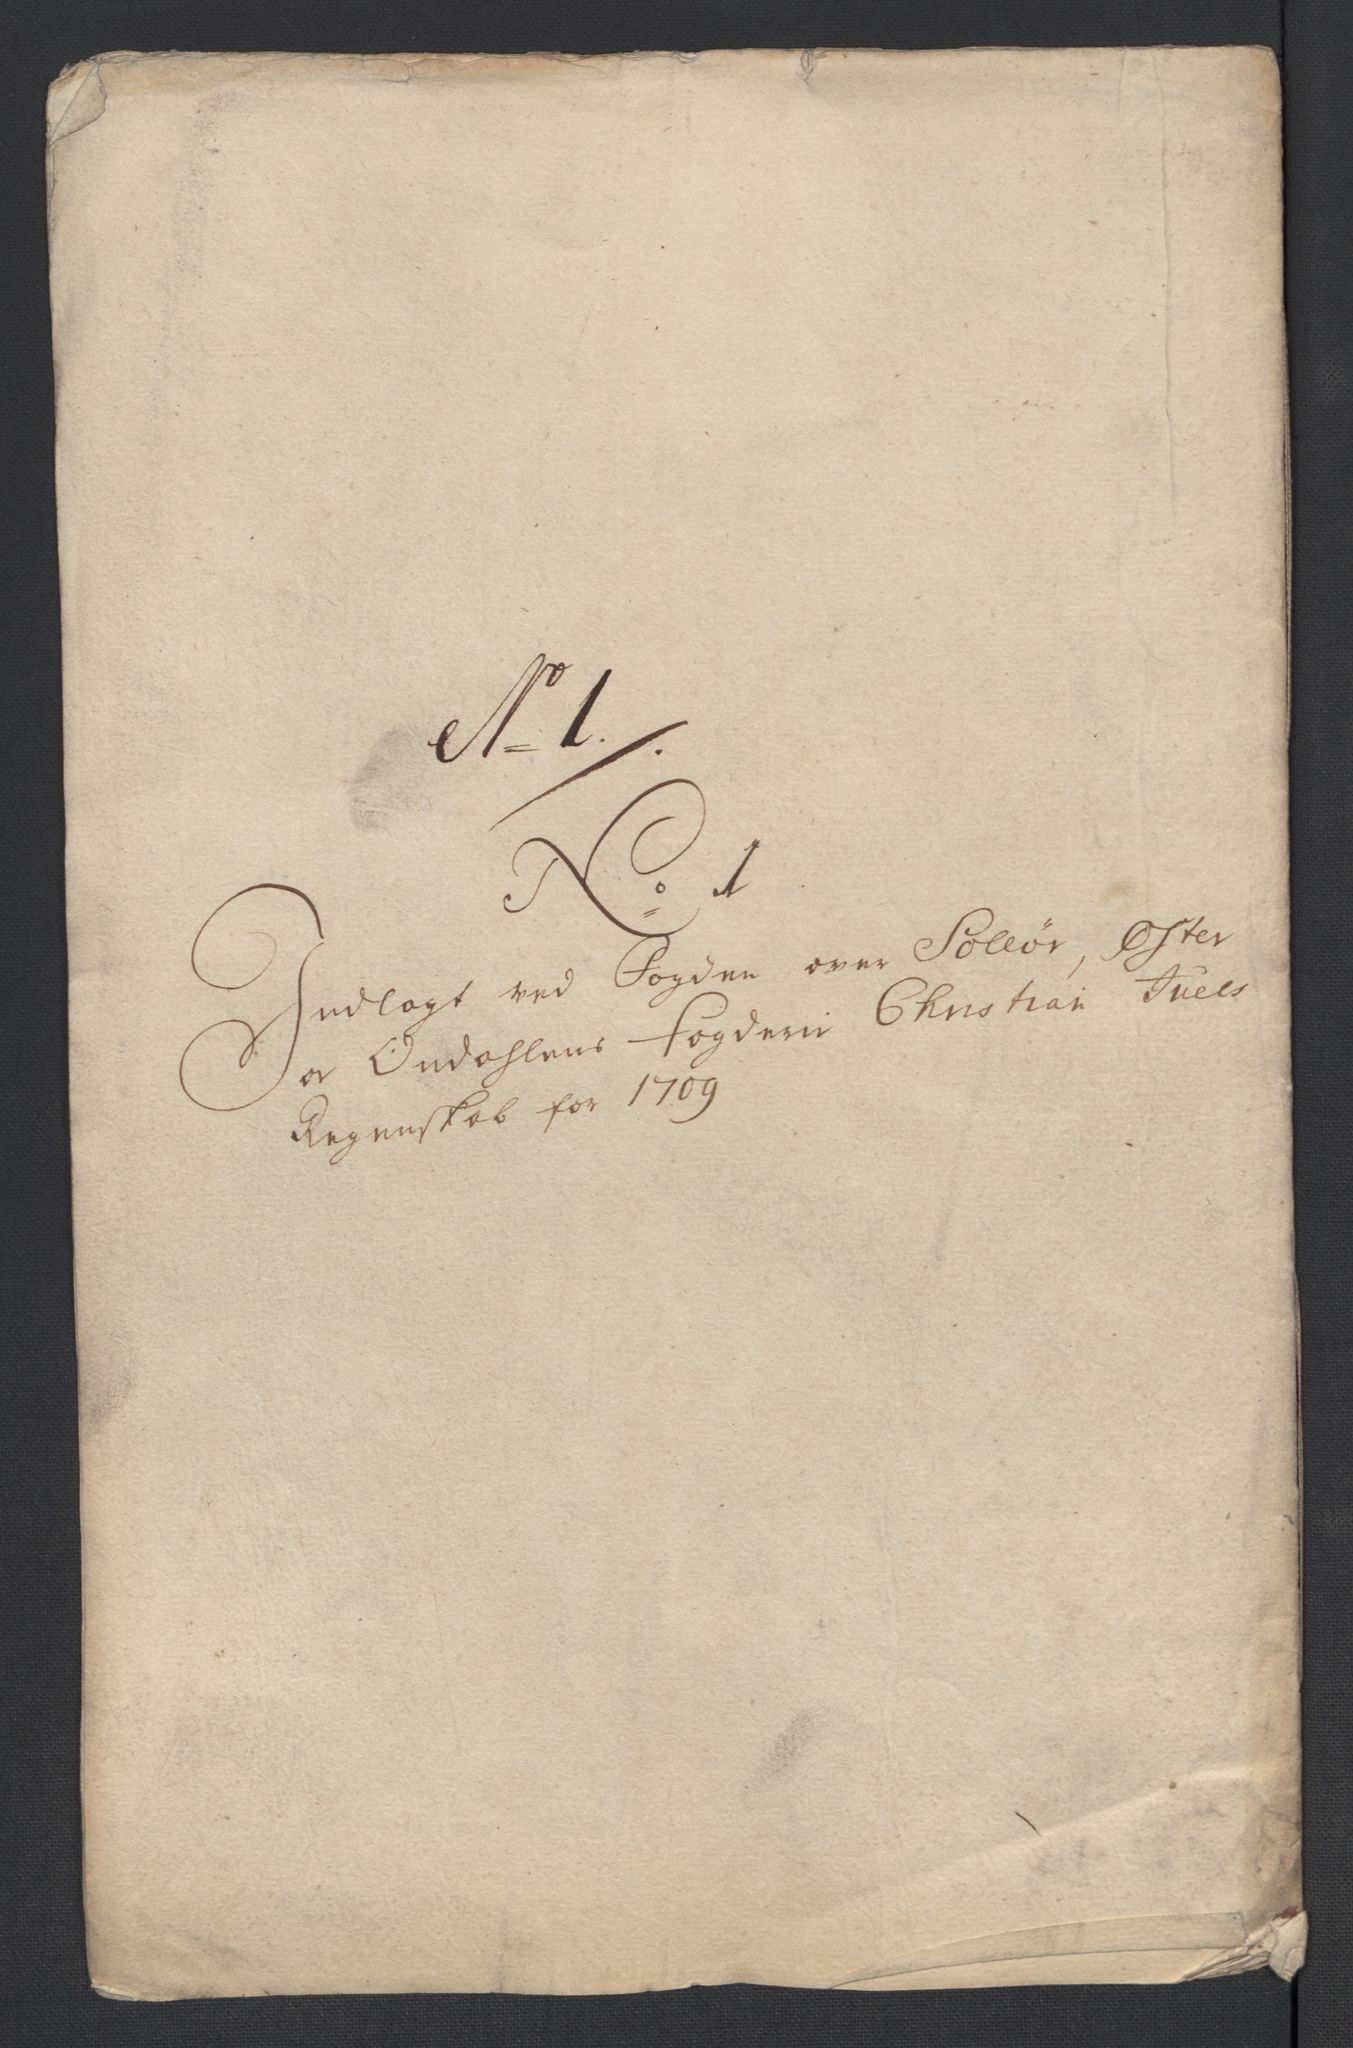 No 1.
No 1
Indlagt ved Fogden over Sollør, Øster
or Oudahlens fogderie Christian Juels
Regenskab for 1709